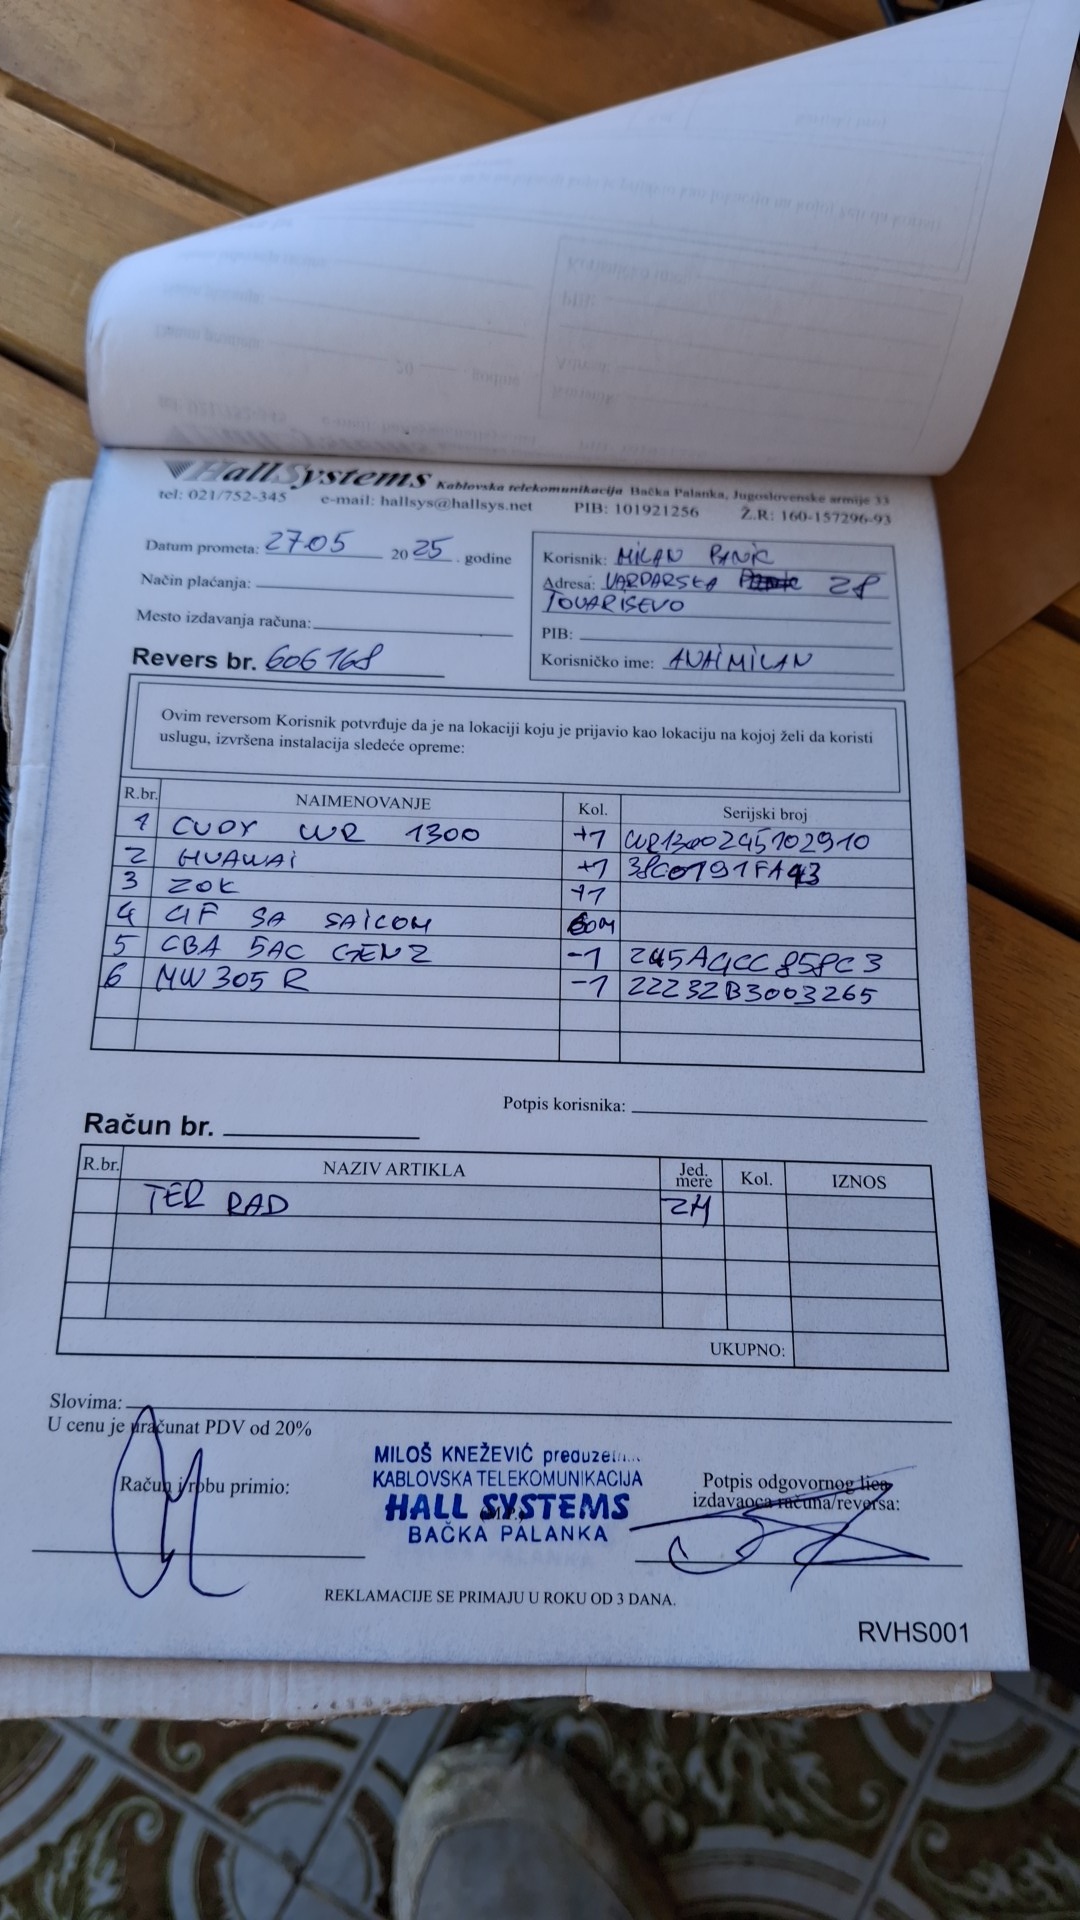 HallSystems Kablovska telekomunikacija Bačka Palanka, Jugoslovenske armije 33
tel: 021/752-345 e-mail: hallsys@hallsys.net PIB: 101921256 Ž.R: 160-157296-93
Datum prometa: 2705 2025. godine
Način plaćanja:
Mesto izdavanja računa:
Revers br. 606168
Korisnik: MILAN PANIC
Adresa: VARDARSKA 28
TOVARISEVO
PIB:
Korisničko ime: ANAIMILAN
Ovim reversom Korisnik potvrđuje da je na lokaciji koju je prijavio kao lokaciju na kojoj želi da koristi
uslugu, izvršena instalacija sledeće opreme:
R.br. NAIMENOVANJE Kol. Serijski broj
1 CUDY WR 1300 +1 WR1300245102910
2 HUAWAI +1 38C0191FA43
3 ZOK +1
4 GF SA SAICOM 60M
5 CBA 5AC GEN2 -1 245A4CC858C3
6 MW305R -1 22232B3003265
Potpis korisnika:
Račun br.
R.br. NAZIV ARTIKLA Jed. mere Kol. IZNOS
TER RAD 2H
UKUPNO:
Slovima:
U cenu je uračunat PDV od 20%
Račun i robu primio:
MILOŠ KNEŽEVIĆ preduzetn...
KABLOVSKA TELEKOMUNIKACIJA
HALL SYSTEMS
(M.P.)
BAČKA PALANKA
Potpis odgovornog lica
izdavaoca računa/reversa:
REKLAMACIJE SE PRIMAJU U ROKU OD 3 DANA.
RVHS001